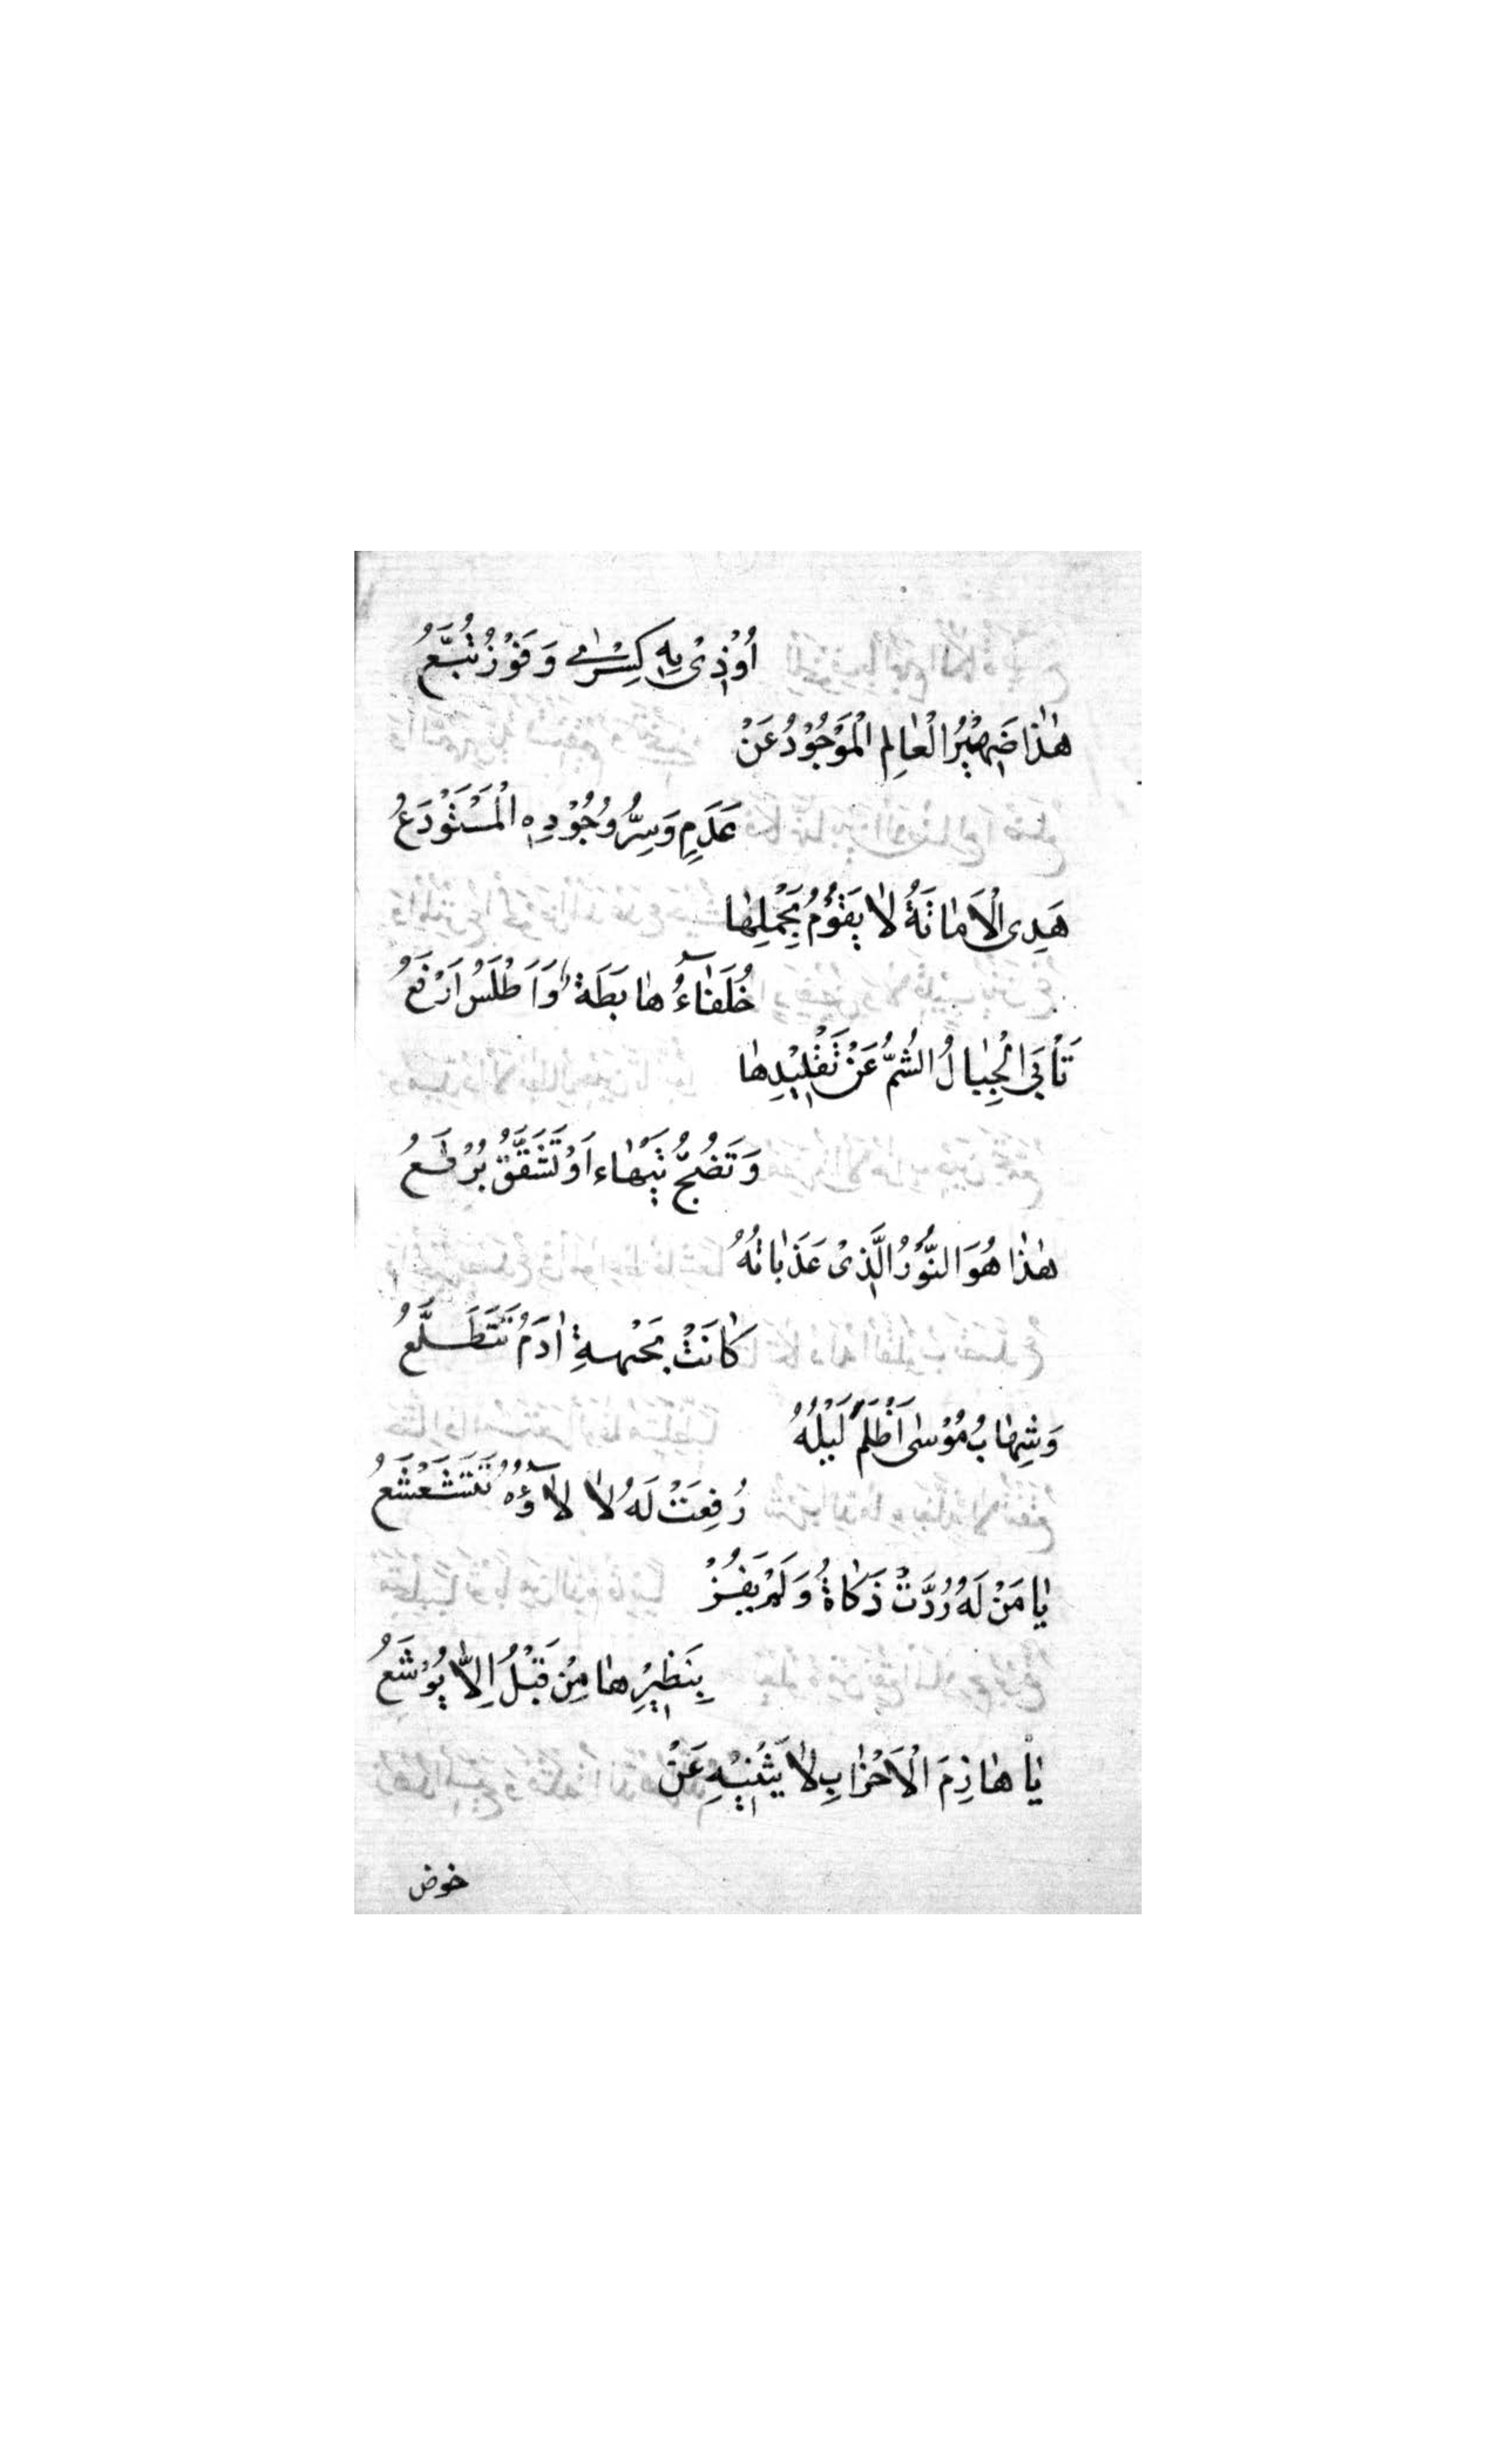 اُوْذِىْ بِهٖ كِسْرٰى وَفَوْزُ تُبَّعُ
هٰذَا ضَمِيْرُ الْعٰالِمِ الْمَوْجُوْدُ عَنْ
عَدَمٍ وَسِرُّ وُجُوْدِهٖ الْمُسْتَوْدَعُ
هَذِى الْاَمٰانَةُ لٰا يَقُوْمُ بِحَمْلِهٰا
خُلَفٰآءُ هٰابَطَةٌ وَاَطْلَسُ اَرْفَعُ
تَأْبَى الْجِبٰالُ الشُّمُّ عَنْ تَقْلِيْدِهٰا
وَتَضُجُّ تَيْهٰاء اَوْ تَشَقَّقُ بُرْقَعُ
هٰذٰا هُوَ النُّوْرُ الَّذِىْ عَذَبٰاتُهُ
كٰانَتْ بِجَبْهَةِ اٰدَمُ تَتَطَلَّعُ
وَشِهٰابُ مُوْسٰى اَظْلَمَ لَيْلُهُ
رُفِعَتْ لَهُ لٰا لٰآؤُهُ تَتَشَعْشَعُ
يٰا مَنْ لَهُ رُدَّتْ ذَكٰاةُ وَلَمْ يَفُزْ
بِنَظِيْرِهٰا مِنْ قَبْلُ اِلّٰا يُوْشَعُ
يٰا هٰازِمَ الْاَحْزٰابِ لٰا يَثْنِيْهِ عَنْ
خوض